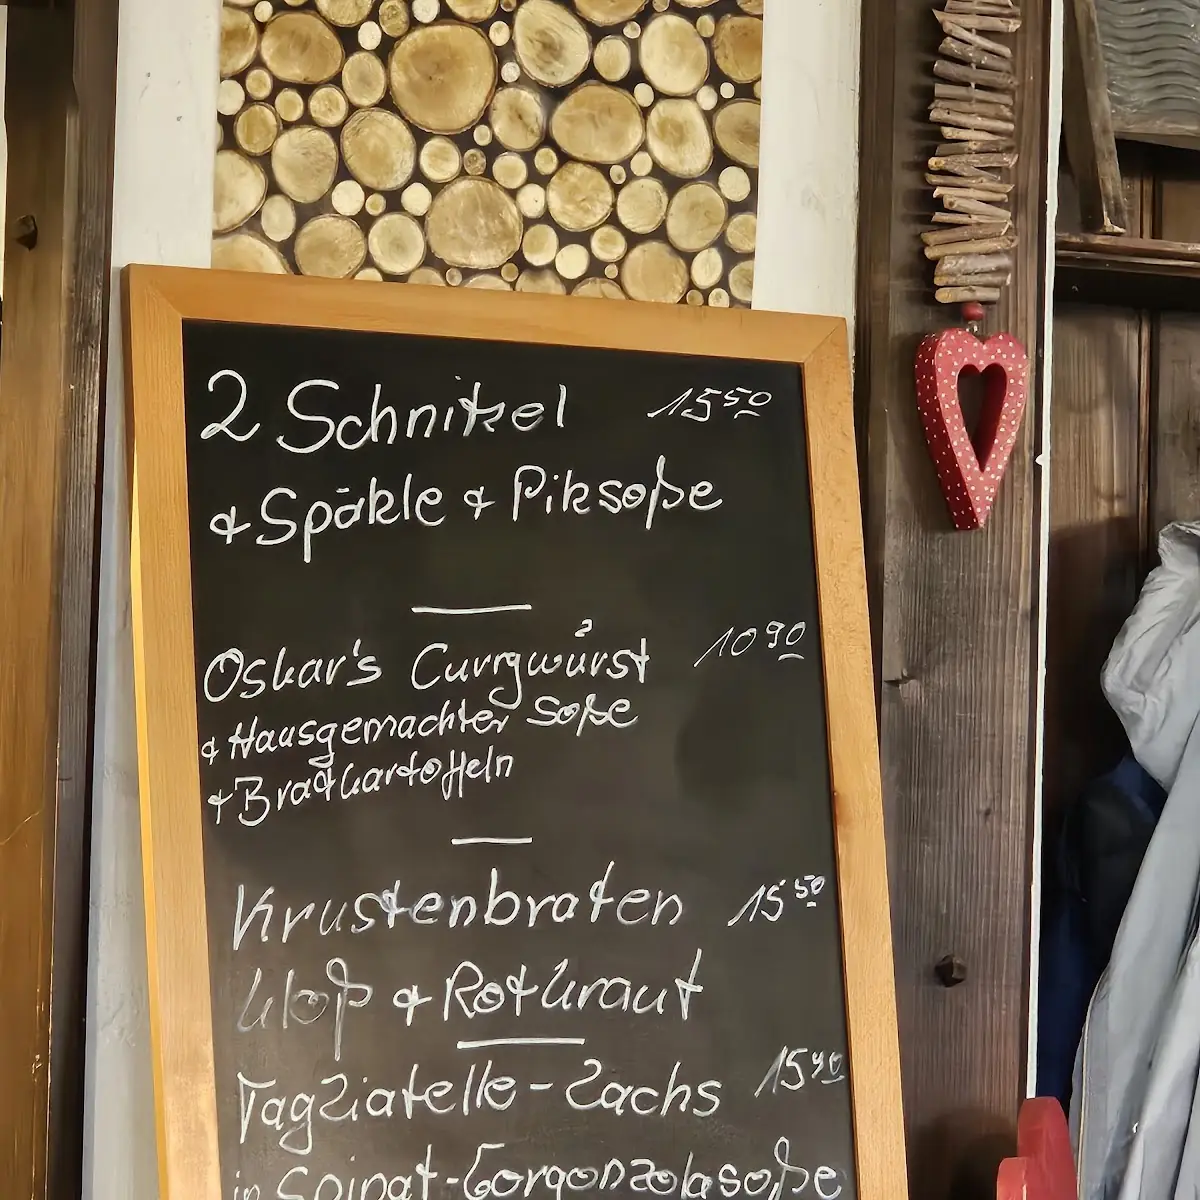 2 Schnitzel 15 50
+ Späkle + Piksoße
Oskar's Currywürst 10 90
+ Hausgemachter Soße
+ Bratkartoffeln
Krustenbraten 15 50
Kloß + Rotkraut
Tagliatelle - Lachs 15 90
in Spinat-Gorgonzolasoße